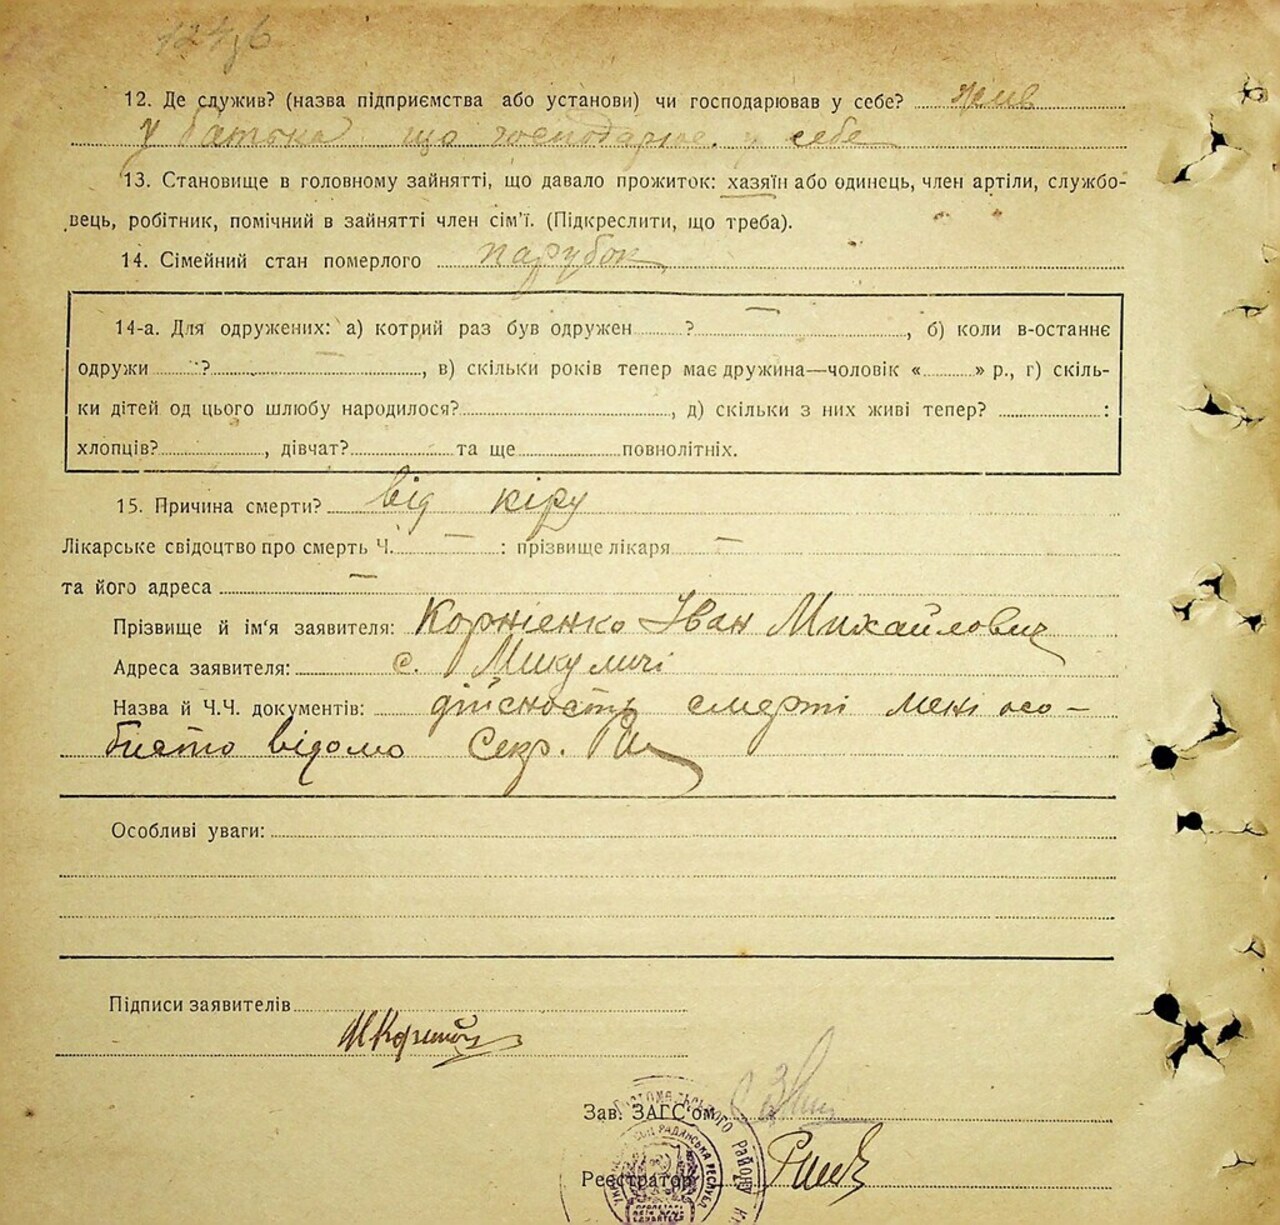 12. Де служив? (назва підприємства або установи) чи господарював у себе? жив
у батька що господарює у себе
13. Становище в головному зайнятті, що давало прожиток: хазяїн або одинець, член артіли, службо-
вець, робітник, помічний в зайнятті член сім'ї. (Підкреслити, що треба).
14. Сімейний стан померлого парубок
14-а. Для одружених: а) котрий раз був одружен ? , б) коли в-останнє
одружи ? , в) скільки років тепер має дружина—чоловік « » р., г) скіль-
ки дітей од цього шлюбу народилося? , д) скільки з них живі тепер? :
хлопців? , дівчат? та ще повнолітніх.
15. Причина смерти? від кіру
Лікарське свідоцтво про смерть Ч. — : прізвище лікаря —
та його адреса —
Прізвище й ім'я заявителя: Корнієнко Іван Михайлович
Адреса заявителя: с. Микуличі
Назва й Ч.Ч. документів: дійсность смерті мені осо-
бисто відомо Секр.
Особливі уваги:
Підписи заявителів
Зав. ЗАГС'ом
Реєстратор
РАЙОНУ